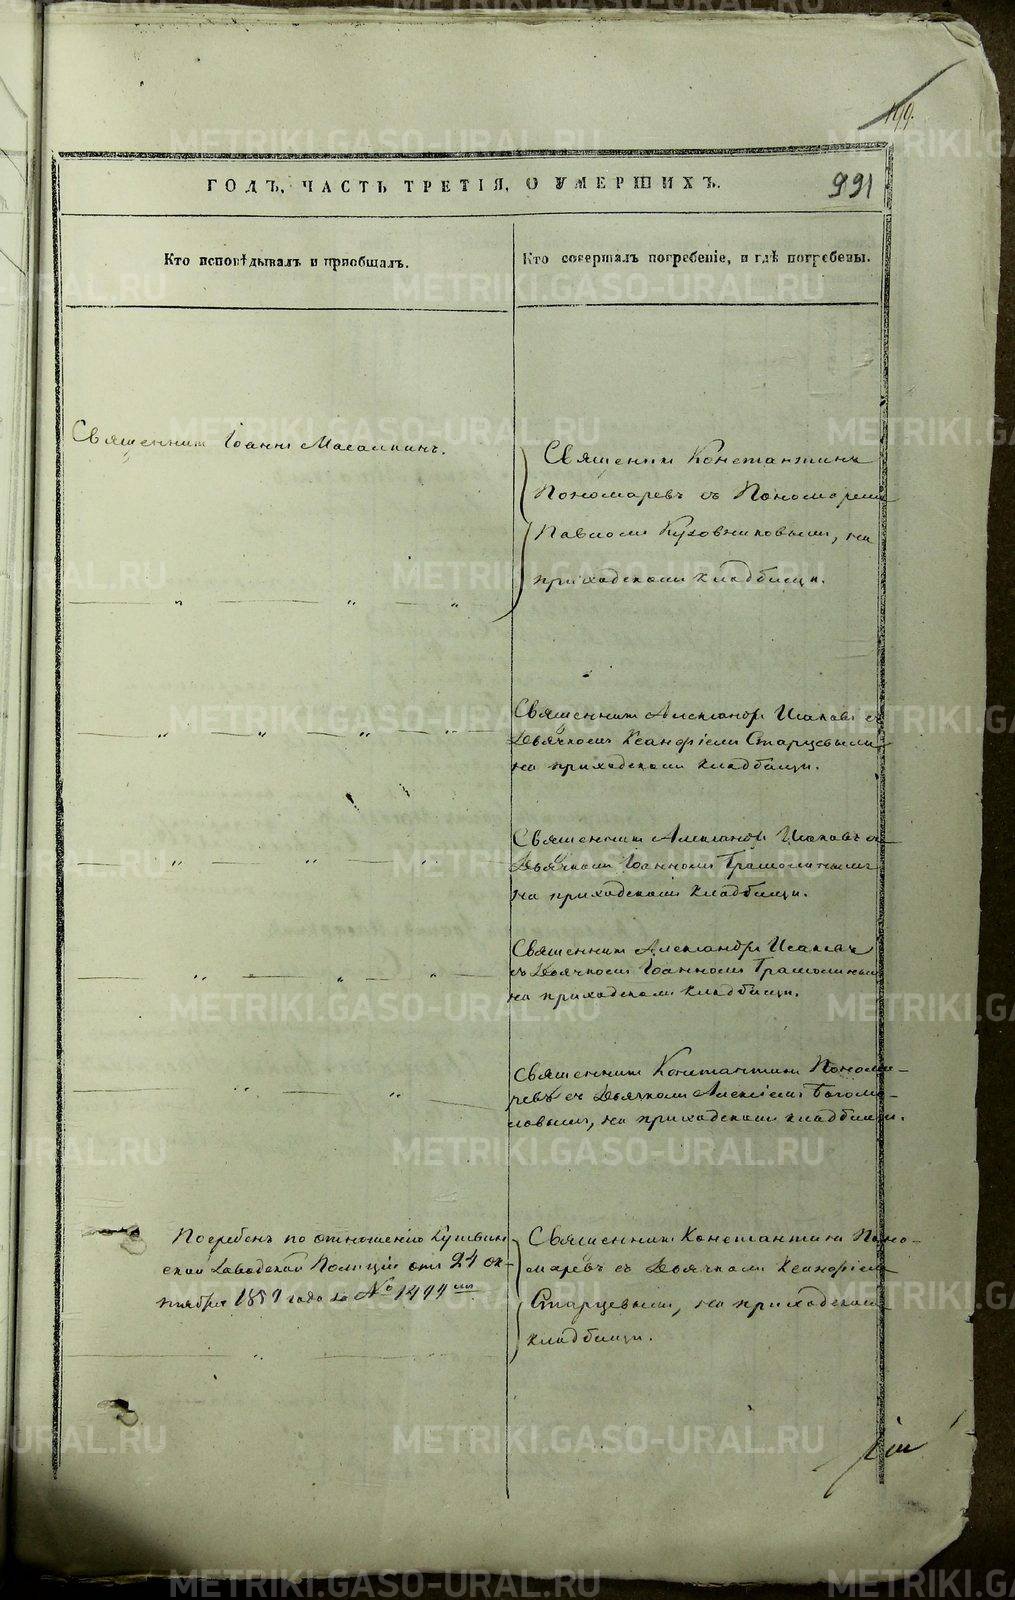 199.
ГОДЪ, ЧАСТЬ ТРЕТІЯ, О УМЕРШИХЪ.
991
Кто исповѣдывалъ и пріобщалъ.
Кто совершалъ погребеніе, и гдѣ погребены.
Священникъ Іоаннъ
Священникъ Константинъ
Пономаревъ съ Пономаремъ
Павломъ Кузовниковымъ, на
приходскомъ кладбищѣ.
Священникъ Александръ Исаковъ съ
Дьячкомъ Ксанфіемъ Старцевымъ
на приходскомъ кладбищѣ.
Священникъ Александръ Исаковъ съ
Дьячкомъ Іоанномъ
на приходскомъ кладбищѣ.
Священникъ Александръ Исаковъ
съ Дьячкомъ Іоанномъ
на приходскомъ кладбищѣ.
Священникъ Константинъ Понома-
ревъ съ Дьячкомъ Алексіемъ Богомо-
ловымъ, на приходскомъ кладбищѣ.
Погребенъ по отношенію Кушвин
ской Заводской Полиціи отъ 24 ок-
тября года за №
Священникъ Константинъ Поно-
маревъ съ Дьячкомъ Ксанфіемъ
Старцевымъ, на приходскомъ
кладбищѣ.
METRIKI.GASO-URAL.RU